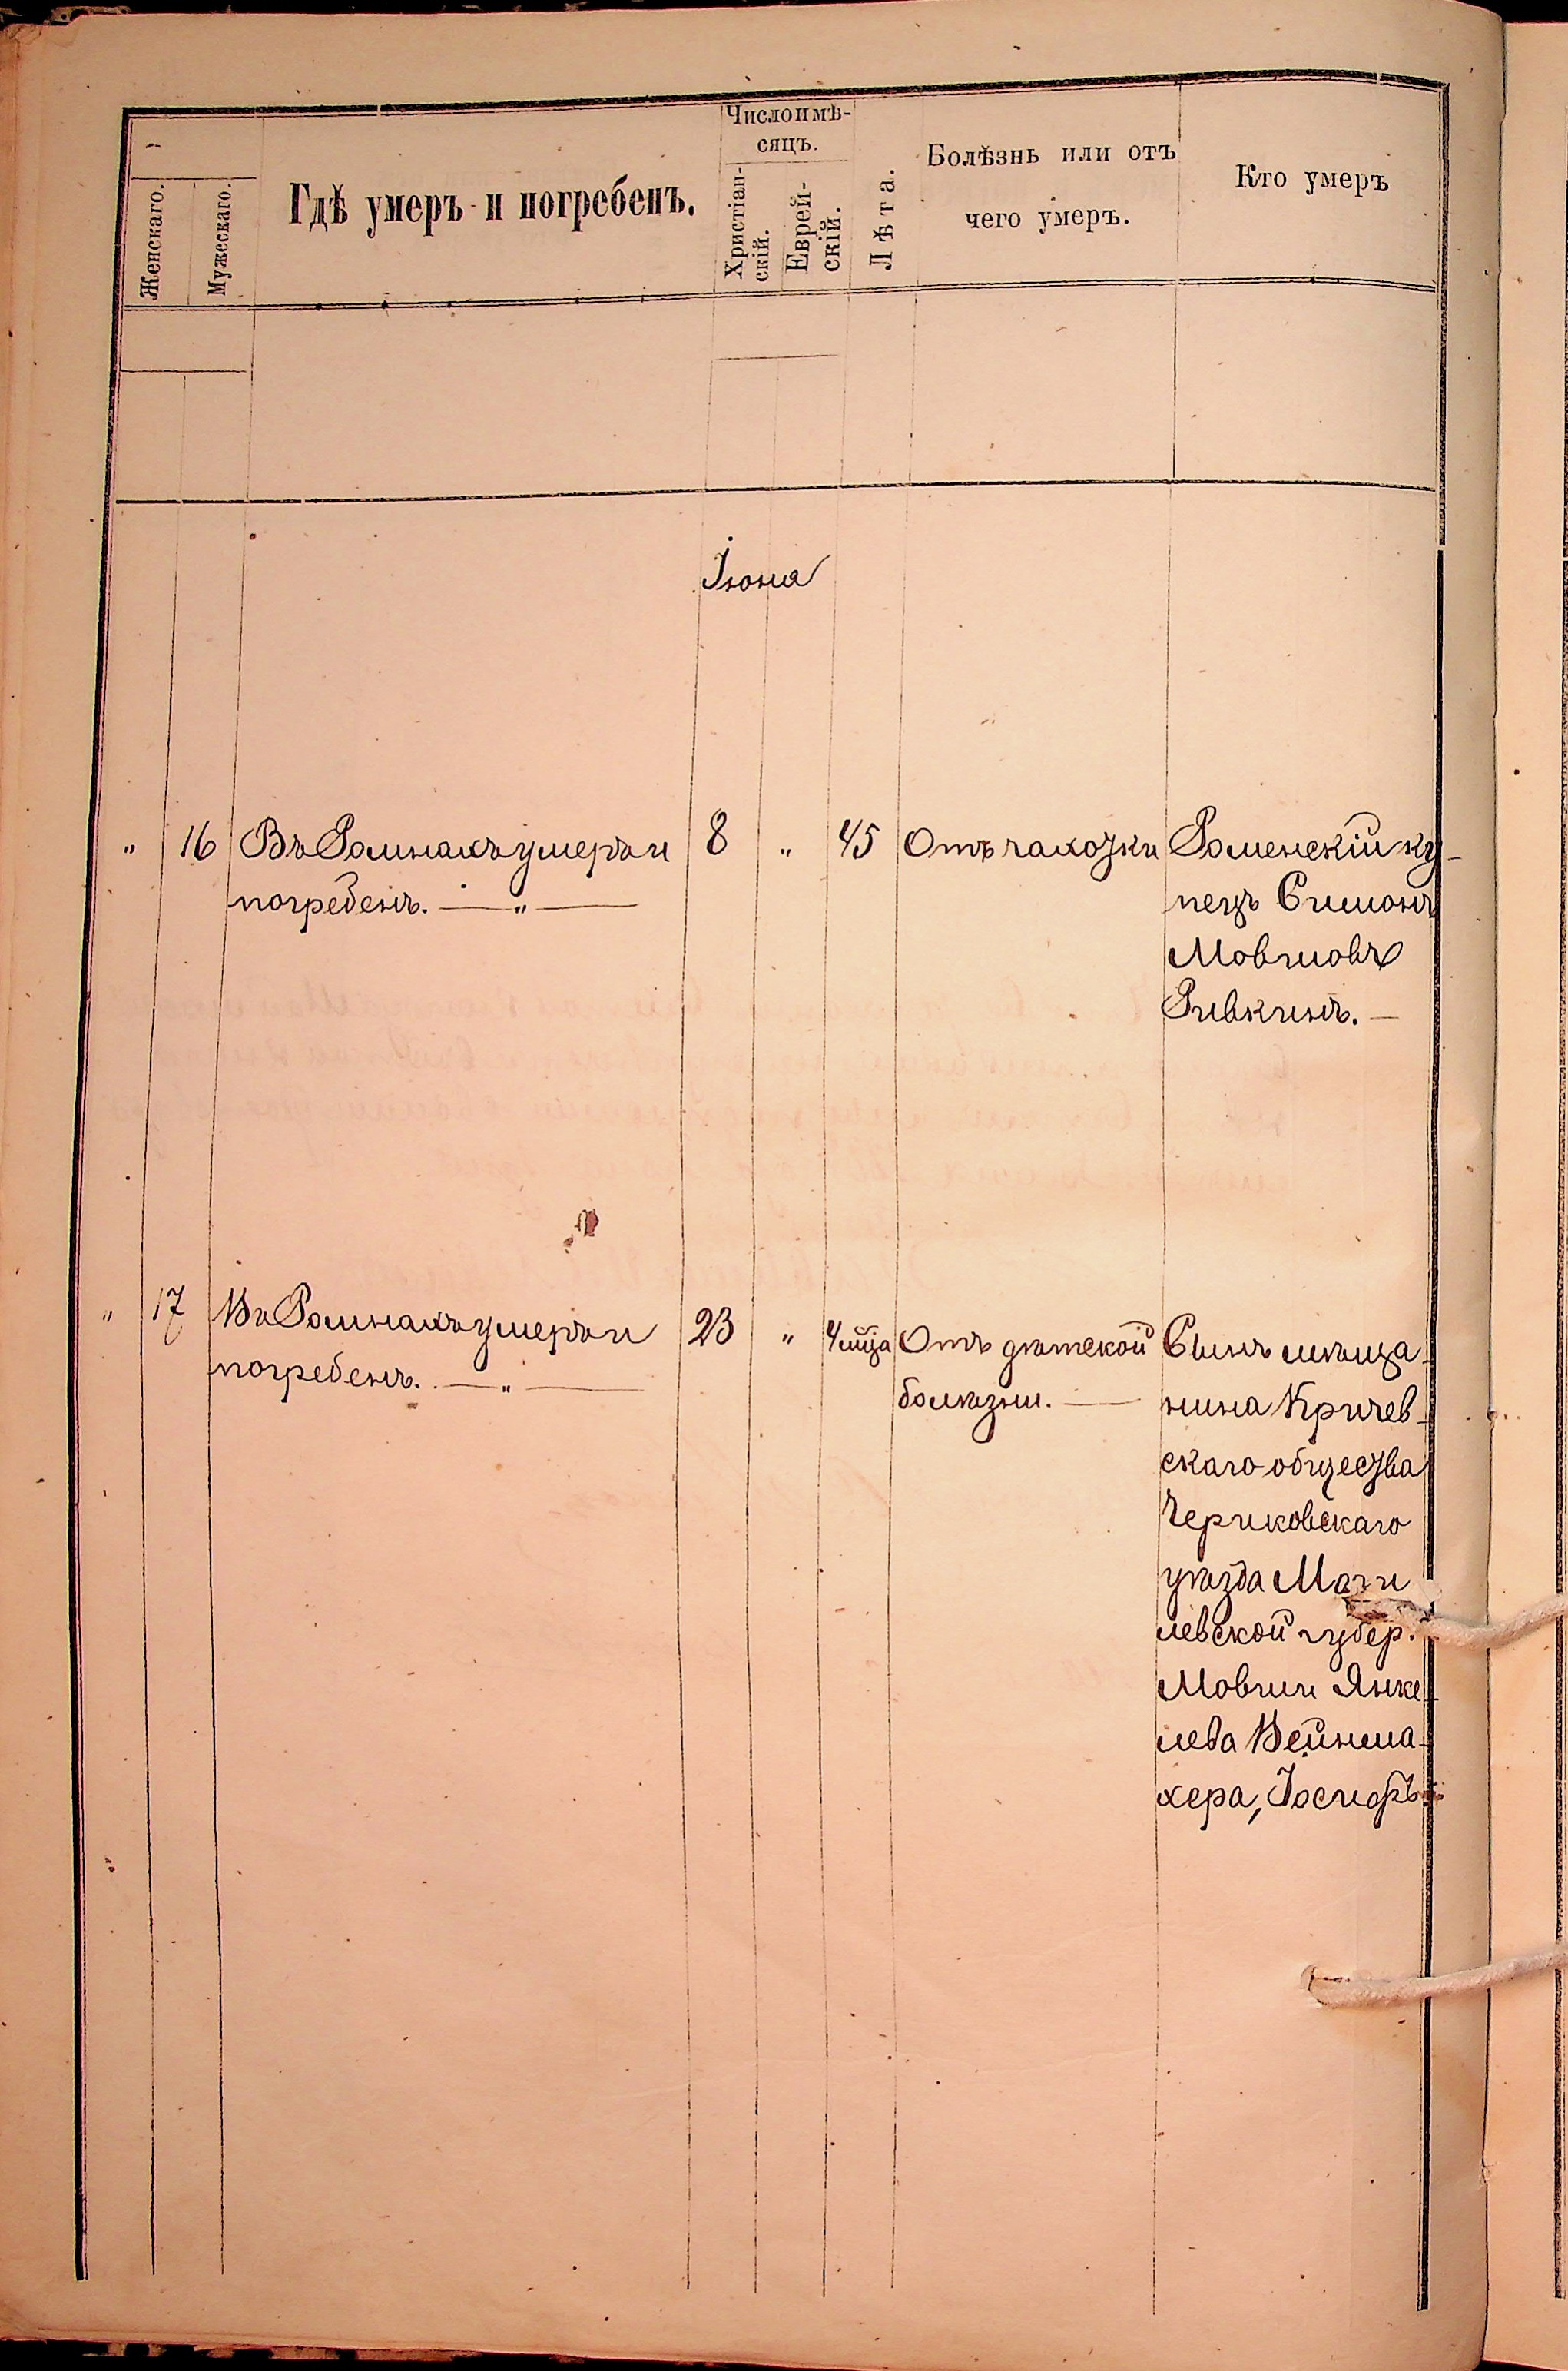 Женскаго.
Мужескаго.
Гдѣ умеръ и погребенъ.
Число и мѣ-
сяцъ.
Христіан-
скій.
Еврей-
скій.
Лѣта.
Болѣзнь или отъ
чего умеръ.
Кто умеръ
Іюня
„ 16 Въ Ромнахъ умеръ и 8 „ 45 Отъ чахотки Роменскій ку-
погребенъ. — „ — пецъ Симонъ
Мовшовъ
Ривкинъ. —
„ 17 Въ Ромнахъ умеръ и 23 „ 4 мца Отъ дѣтской Сынъ мѣща-
погребенъ. — „ — болѣзни. — нина Кричев-
скаго общества
Чериковскаго
уѣзда Моги
левской губер.
Мовши Янке-
лева Вейнма-
хера, Іосифъ